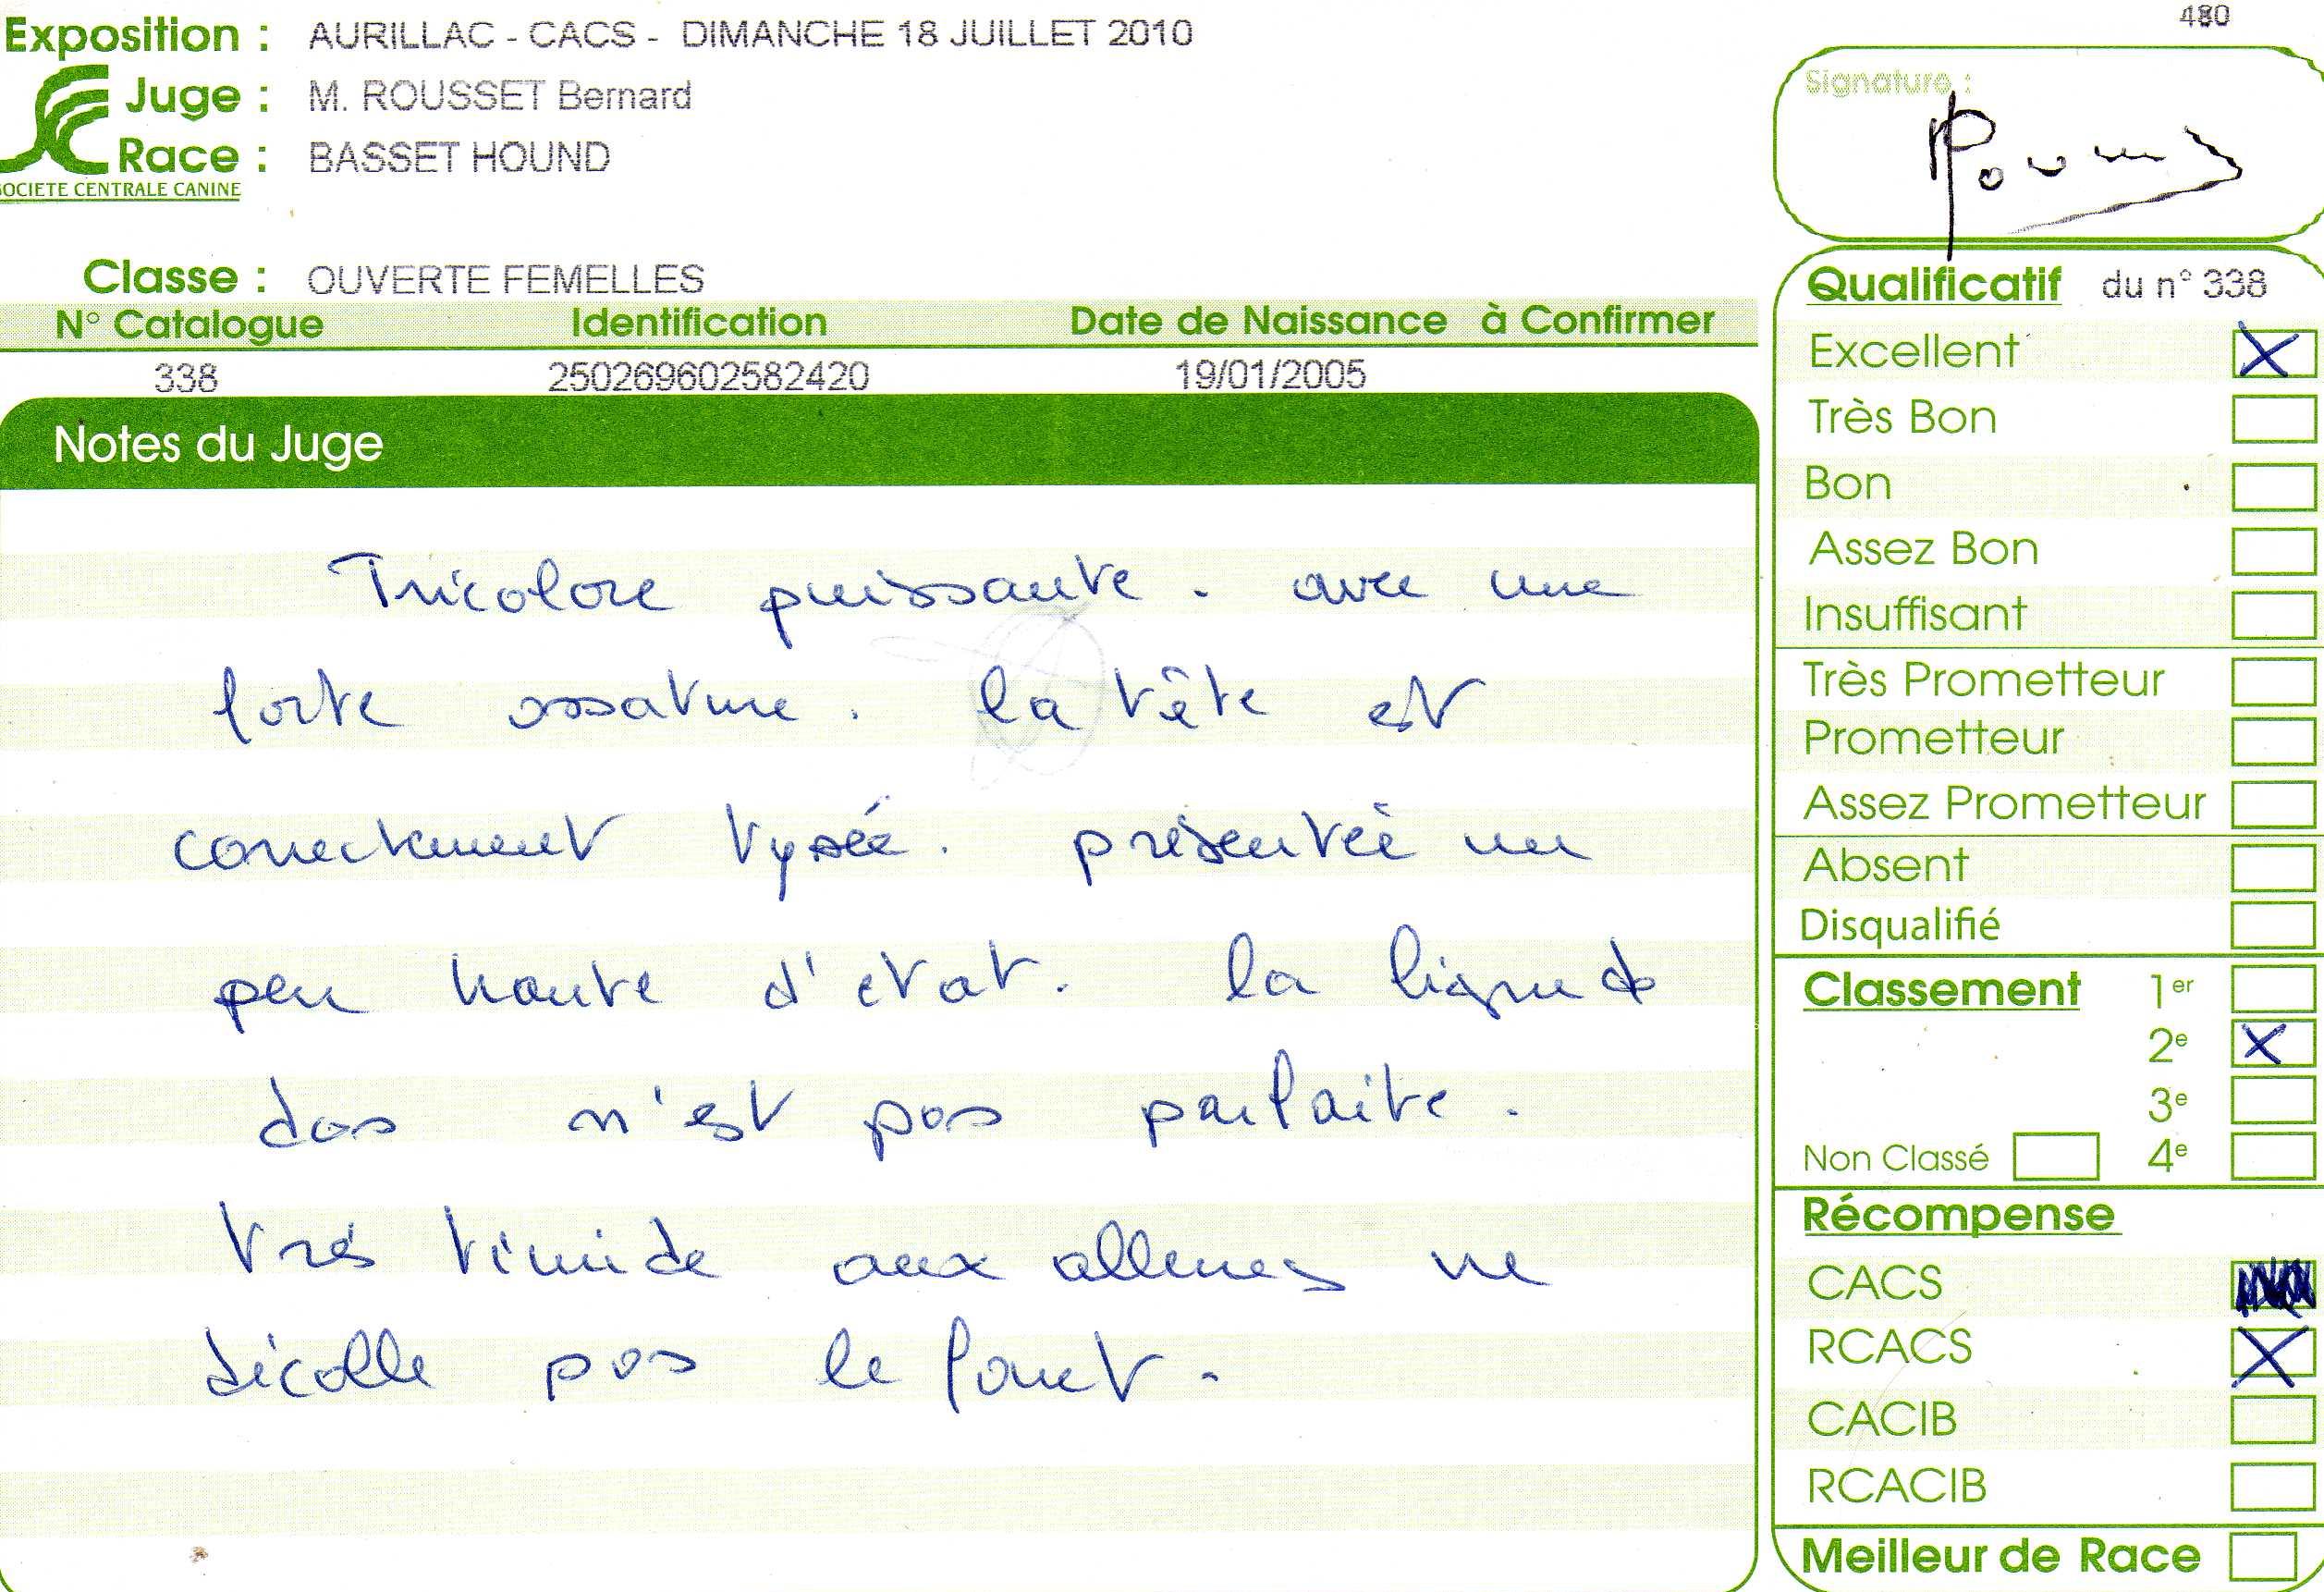 480
Exposition : AURILLAC - CACS - DIMANCHE 18 JUILLET 2010
Juge : M. ROUSSET Bernard
Race : BASSET HOUND
SOCIETE CENTRALE CANINE
Signature :
Classe : OUVERTE FEMELLES
N° Catalogue Identification Date de Naissance à Confirmer
338 250269602582420 19/01/2005
Notes du Juge
Tricolore puissante. avec une
forte ossature. la tête est
correctement typée. présentée un
peu haute d'etat. la ligne de
dos n'est pas parfaite.
très timide aux allures ne
décolle pas le fouet.
Qualificatif du n° 338
Excellent X
Très Bon
Bon
Assez Bon
Insuffisant
Très Prometteur
Prometteur
Assez Prometteur
Absent
Disqualifié
Classement 1er
2e X
3e
Non Classé 4e
Récompense
CACS
RCACS X
CACIB
RCACIB
Meilleur de Race